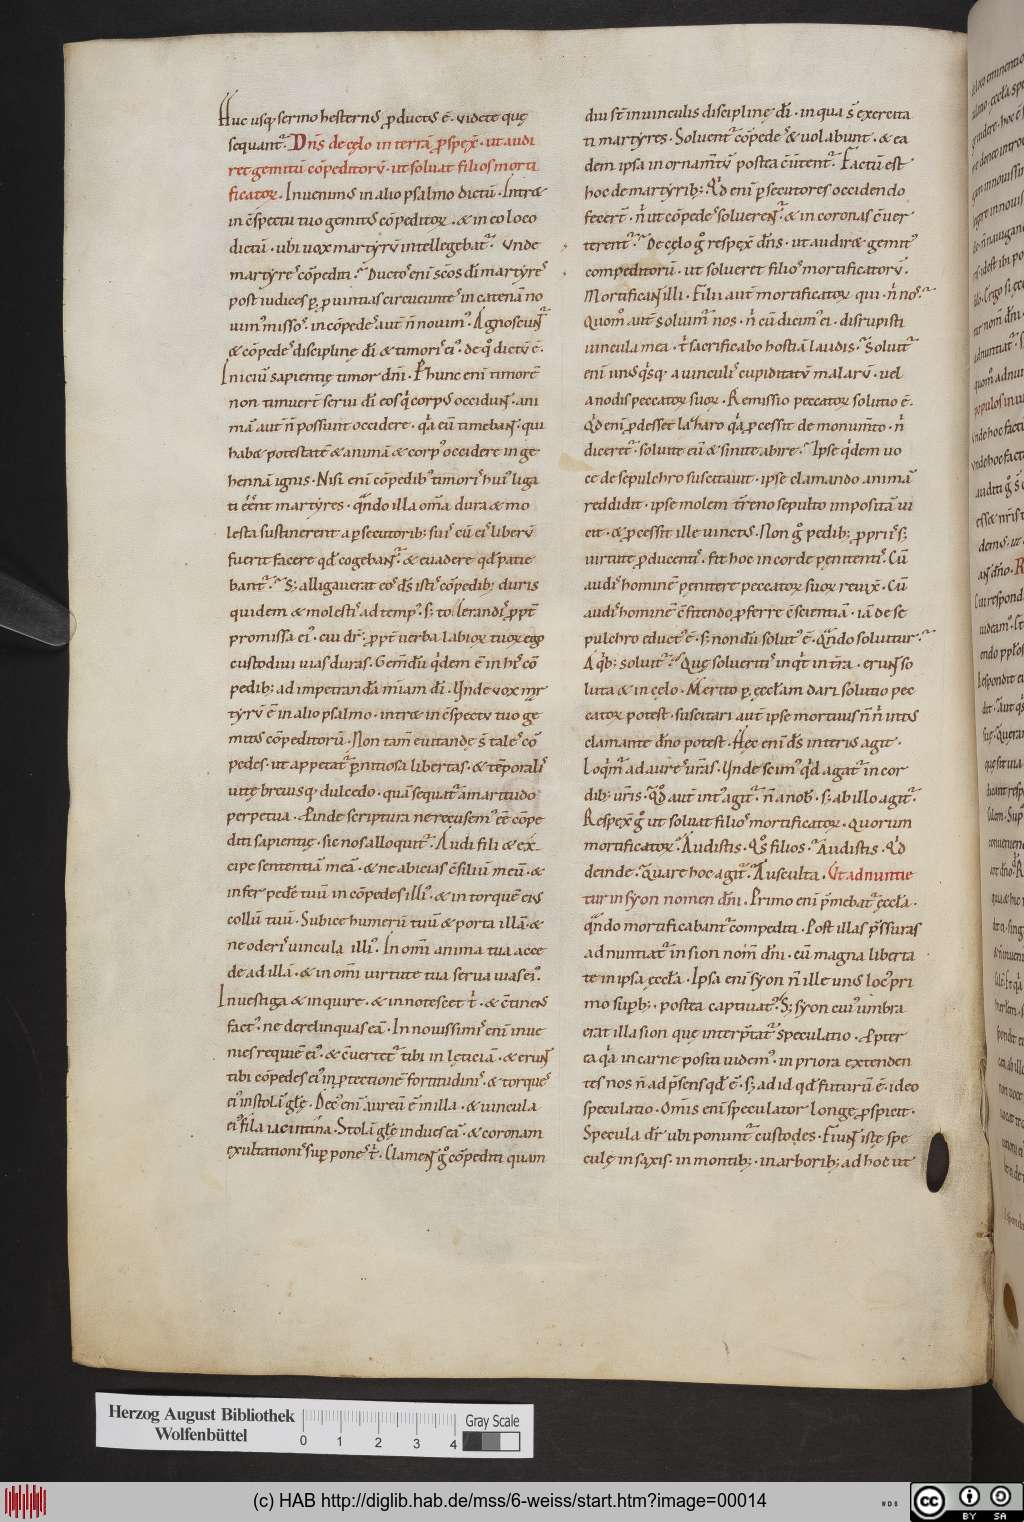 Huc usq; sermo hesternꝰ ꝓductꝰ ē. Videte quę
sequant᷑. Dn̄s de cęlo in terrā ꝓspex̄. ut audi
ret gemitū cōpeditorū. ut soluat filios morti
ficatoꝝ. Invenimꝰ in alio psalmo dictū. Intret
in c̄spectu tuo gemitꝰ cōpeditoꝝ. & in eo loco
dictū. ubi uox martyrū intellegebat᷑. Unde
martyres cōpediti? Ductos eni sc̄os dī martyres
post iudices ꝑ ꝓuintias circueuntes in catenā no
uimꝰ missos. in cōpedes aut̄ n̄ nouimꝰ. Agnoscunt᷑
& cōpedes disciplinę dī & timoris eiꝰ. de qͦ dictū ē.
Iniciū sapientię timor dn̄i. P̱ hunc eni timorē
non timuert̄ serui dī eos qͥ corpus occidunt. ani
mā aut̄ n̄ possunt occidere. qͥa eū timebant. qui
habet potestatē & animā & corpꝰ occidere in ge
hennā ignis. Nisi eni cōpedibꝰ timoris huiꝰ liga
ti eēnt martyres. qn̄do illa om̄a dura & mo
lesta sustinerent a ꝑsecutorib; sui cū eis liberū
fuerit facere qd̄ cogebant᷑. & euadere qd̄ patie
bant᷑? S; alligauerat eos ds̄ istis cōpedib; duris
quidem & molestis ad tempꝰ. s; tolerandis ꝓpt̄
promissa eiꝰ. cui dr̄. ꝓpt̄ uerba labioꝝ tuoꝝ ego
custodiui uias duras. Gemēdū qͥdem ē in his cō
pedib; ad impetrandā mīam dī. Unde uox mar
tyrū ē in alio psalmo. intret in c̄spectu tuo ge
mitꝰ cōpeditorū. Non tam̄ euitandę s̄ tales cō
pedes. ut appetat᷑ ꝑnitiosa libertas. & tēporalis
uitę breuisq; dulcedo. quā sequat᷑ amaritudo
perpetua. Proinde scriptura ne recusemꝰ eē cōpe
diti sapientię. sic nos alloquit᷑. Audi fili & ex
cipe sententiā meā. & ne abicias c̄siliū meū. &
infer pedē tuū in cōpedes illiꝰ. & in torquē eiꝰ
collū tuū. Subice humerū tuū & porta illā. &
ne oderis uincula illiꝰ. In omī anima tua acce
de ad illā. & in omī uirtute tua serua uias eiꝰ.
Inuestiga & inquire. & innotescet tͥ. & c̄tinens
factꝰ. ne derelinquas eā. In nouissimis eni inue
nies requiē eiꝰ. & c̄uertet᷑ tibi in lęticiā. & erunt
tibi cōpedes eiꝰ in ꝓtectionē fortitudinis. & torques
eiꝰ in stolā glę. Decꝰ eni aureū ē in illa. & uincula
eiꝰ fila iacintina. Stolā glę indues eā. & coronam
exultationis suꝑpones tͥ. Clament gͦ cōpediti quam
diu st̄ in uinculis disciplinę dī. in qua s̄ exercita
ti martyres. Soluent᷑ cōpedes & uolabunt. & ea
dem ipsa in ornam̄tū postea c̄uertent᷑. Factū est
hoc de martyrib; Qͥd eni ꝑsecutores occidendo
fecert̄. nͥ ut cōpedes soluerent᷑. & in coronas c̄uer
terent᷑? De cęlo gͦ respex̄ dn̄s. ut audiret gemitꝰ
compeditorū. ut solueret filios mortificatorū.
Mortificati illi. Filii aut̄ mortificatoꝝ qui. nͥ nos?
Quom̄ aut̄ soluim᷑ nos. nͥ cū dicimꝰ ei. disrupisti
uincula mea. tͥ sacrificabo hostiā laudis? Soluit᷑
eni unꝰqͥsq; a uinculis cupiditatū malarū. uel
a nodis peccatoꝝ suoꝝ. Remissio peccatoꝝ solutio ē.
Qͥd eni ꝓdesset lazaro qͥa ꝓcessit de monum̄to. nͥ
diceret᷑. soluite eū & sinite abire? Ipse qͥdem uo
ce de sepulchro suscitauit. ipse clamando animā
reddidit. ipse molem t̄reno sepulto impositā ui
cit. & ꝓcessit ille uinctꝰ. Non gͦ pedib; ꝓpriis s;
uirtute ꝓducentis. fit hoc in corde pęnitentis. Cū
audis hominē penitere peccatoꝝ suoꝝ reuix̄. Cū
audis hominē c̄fitendo ꝓferre c̄scientiā. iā de se
pulchro eductꝰ ē. s; nondū solutꝰ ē. Qn̄do soluitur?
A qͥb; soluit᷑? Quę solueritis inqͥt in t̄ra. erunt so
luta & in cęlo. Merito ꝑ ęccłam dari solutio pec
catoꝝ potest. suscitari aut̄ ipse mortuus n̄ nͥ intꝰ
clamante dn̄o potest. Hęc eni ds̄ interiꝰ agit.
Loqͥm᷑ ad aures uras. Unde scimꝰ qͥd agat᷑ in cor
dib; uris? Qd̄ aut̄ intꝰ agit᷑. n̄ a nob̄. s; ab illo agit᷑.
Respex̄ gͦ ut soluat filios mortificatoꝝ. Quorum
mortificatoꝝ? Audistis. Qͦs filios? Audistis. Qͥd
deinde? Quare hoc agit᷑? Ausculta. Ut adnuntie
tur in syon nomen dn̄i. Primo eni p̄mebat᷑ ęccła.
qn̄do mortificabant᷑ compediti. Post illas p̄ssuras
adnuntiat᷑ in sion nom̄ dn̄i. cū magna liberta
te in ipsa ęccła. Ipsa eni syon n̄ ille unꝰ locꝰ pri
mo suꝑb;. postea captiuatꝰ. S; syon cuiꝰ umbra
erat illa sion que interp̄tat᷑ speculatio. Propter
ea qͥa in carne positi uidemꝰ. in priora extenden
tes nos n̄ ad p̄sens qd̄ ē. s; ad id qd̄ futurū ē. ideo
speculatio. Omīs eni speculator longe ꝓspicit.
Specula dr̄ ubi ponunt᷑ custodes. Fiunt istę spe
culę in saxis. in montib;. in arborib; ad hoc ut
Herzog August Bibliothek
Wolfenbüttel
0 1 2 3 4
Gray Scale
(c) HAB http://diglib.hab.de/mss/6-weiss/start.htm?image=00014
cc BY SA